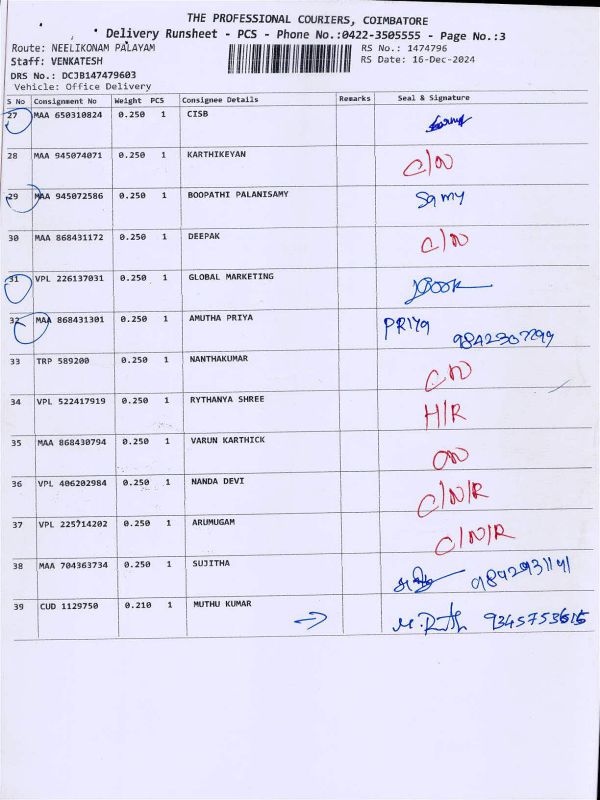 THE PROFESSIONAL COURIERS, COIMBATORE
Delivery Runsheet - PCS - Phone No.:0422-3505555 - Page No.:3
Route: NEELIKONAM PALAYAM RS No.: 1474796
Staff: VENKATESH RS Date: 16-Dec-2024
DRS No.: DCJB147479603
Vehicle: Office Delivery
S No Consignment No Weight PCS Consignee Details Remarks Seal & Signature
27 MAA 650310824 0.250 1 CISB
28 MAA 945074071 0.250 1 KARTHIKEYAN C/N
29 MAA 945072586 0.250 1 BOOPATHI PALANISAMY Samy
30 MAA 868431172 0.250 1 DEEPAK C/N
31 VPL 226137031 0.250 1 GLOBAL MARKETING
32 MAA 868431301 0.250 1 AMUTHA PRIYA PRIYA 9842307299
33 TRP 589200 0.250 1 NANTHAKUMAR
34 VPL 522417919 0.250 1 RYTHANYA SHREE H/R
35 MAA 868430794 0.250 1 VARUN KARTHICK
36 VPL 406202984 0.250 1 NANDA DEVI C/N/R
37 VPL 225714202 0.250 1 ARUMUGAM C/N/R
38 MAA 704363734 0.250 1 SUJITHA 9892931191
39 CUD 1129750 0.210 1 MUTHU KUMAR